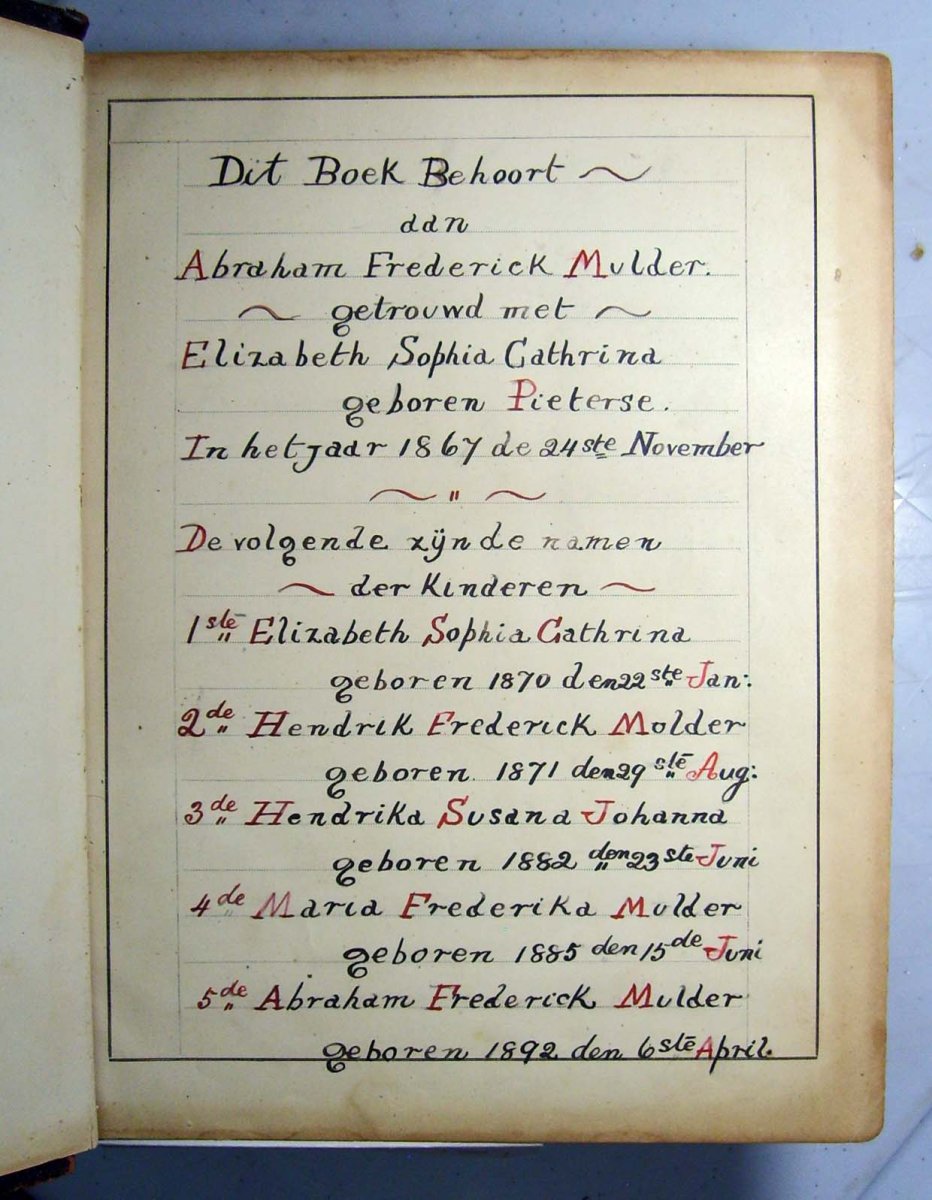 Dit Boek Behoort ~
aan
Abraham Frederick Mulder.
~ getrouwd met ~
Elizabeth Sophia Cathrina
geboren Pieterse.
In het jaar 1867 de 24ste November
~ " ~
De volgende zijn de namen
~ der Kinderen ~
1ste Elizabeth Sophia Cathrina
geboren 1870 den 22ste Jan:.
2de Hendrik Frederick Molder
geboren. 1871 den 29ste Aug:
3de Hendrika Susana Johanna
geboren 1882 den 23ste Juni
4de Maria Frederika Mulder
geboren 1885 den 15de Juni
5de Abraham Frederick Mulder
geboren 1892 den 6ste April.